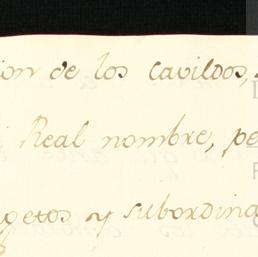 ion de los cavildos,
Real nombre, pe
getos y subordina